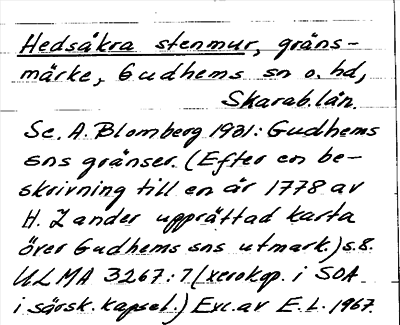 Hedsåkra stenmur, gräns-
märke, Gudhems sn o. hd,
Skarab.län.
Se. A. Blomberg 1931: Gudhems
sns gränser. (Efter en be-
skrivning till en år 1778 av
H. Zander upprättad karta
över Gudhems sns utmark.) s. 8.
ULMA 3267:7 (xerokop. i SOA
i särsk. kapsel.) Exc. av E. L. 1967.